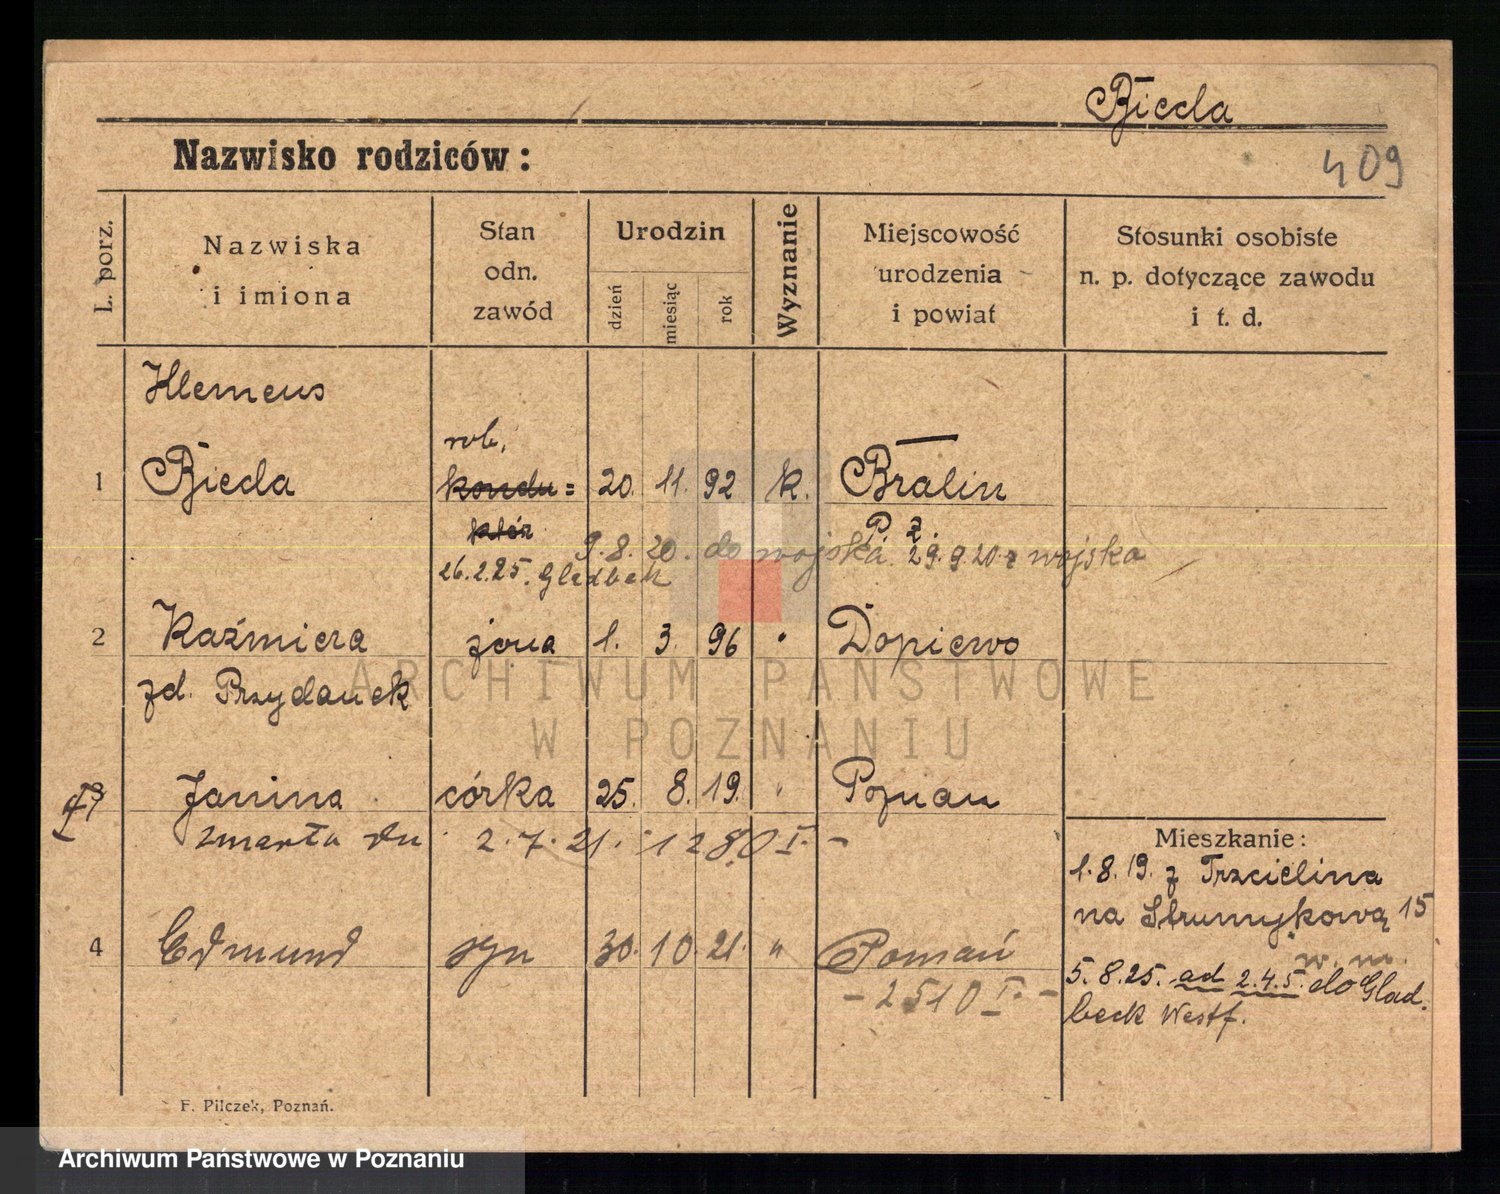 Bieda
Nazwisko rodziców:
409
L. porz.
Nazwiska
i imiona
Stan
odn.
zawód
Urodzin
dzień
miesiąc
rok
Wyznanie
Miejscowość
urodzenia
i powiat
Stosunki osobiste
n. p. dotyczące zawodu
i t. d.
Klemens
rob.
1 Bieda kondu= 20. 11. 92 k. Bralin
któr P. z.
9.8.20. do wojska 29.9.20 z wojska
26.2.25. Gladbek
2 Kaźmiera żona 1. 3. 96 " Dopiewo
zd. Przydanek
3 Janina córka 25. 8. 19. " Poznań
zmarła dn 2.7.21. 1280 I. -
4 Edmund syn 30. 10. 21. " Poznań
- 2510 I. -
Mieszkanie:
1.8.19. z Trzcielina
na Strumykową 15
w. m.
5.8.25. ad 2.4.5. do Glad.
beck Westf.
F. Pilczek, Poznań.
ARCHIWUM PAŃSTWOWE
W POZNANIU
Archiwum Państwowe w Poznaniu